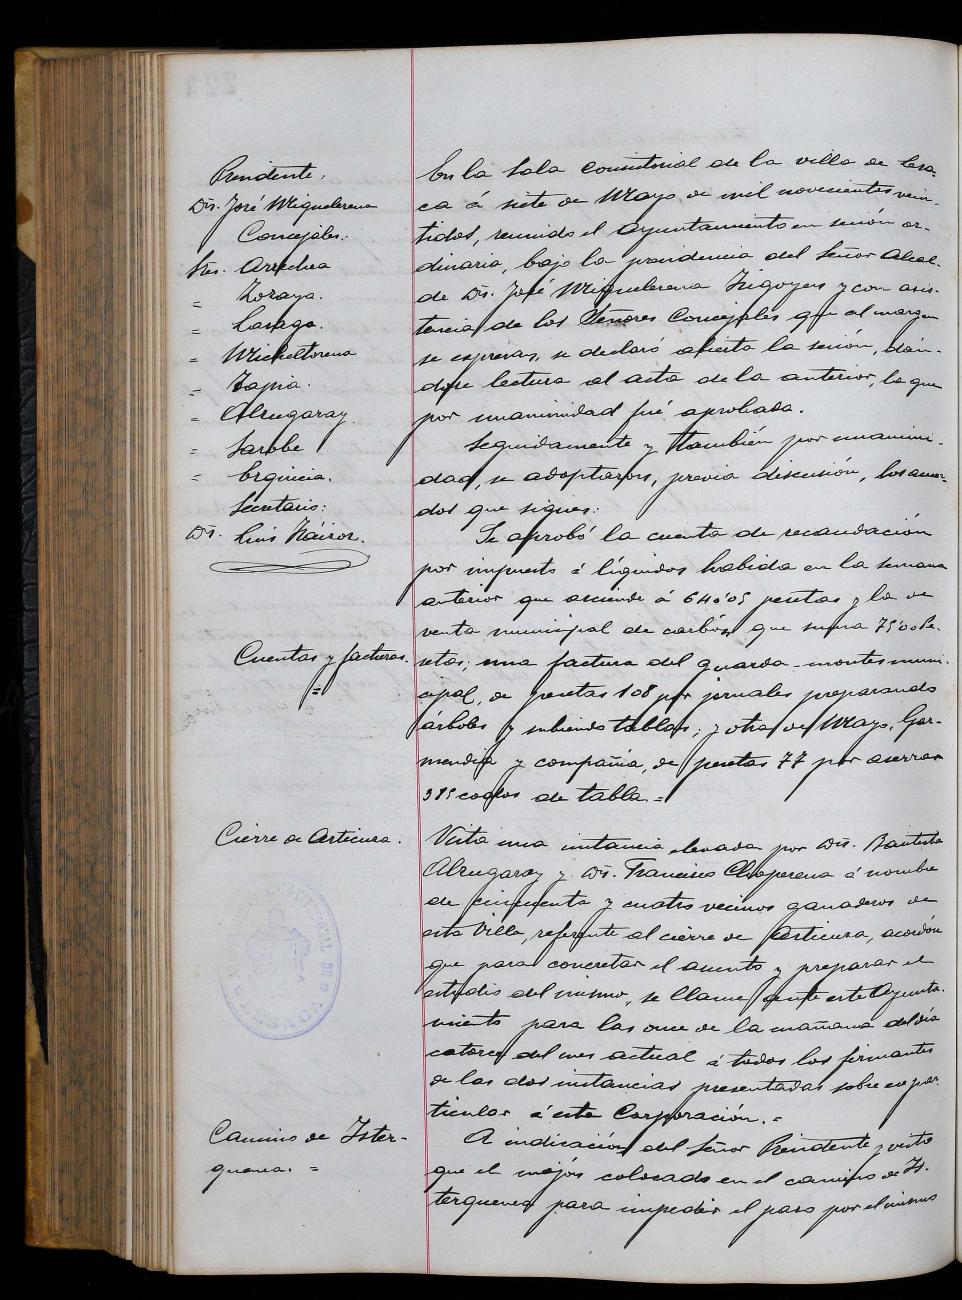 Presidente:
Dn. José Miguelerena
Concejales:
Sres. Arrechea
= Zoraya.
= Lasaga.
= Micheltorena
= Tapia.
= Alzugaray.
= Sarobe
= Erquicia.
Secretario:
Dn. Luis
En la Sala Consistorial de la villa de Lesa-
ca á siete de Mayo de mil novecientos vein-
tidos, reunido el Ayuntamiento en sesión or-
dinaria, bajo la presidencia del Señor Alcal-
de Dn. José Miguelerena Irigoyen y con asis-
tencia de los Señores Concejales que al margen
se expresan, se declaró abierta la sesión, dán-
dose lectura al acta de la anterior, la que
por unanimidad fué aprobada.
Seguidamente y también por unanimi-
dad, se adoptaron, previa discusión, los acuer-
dos que siguen:
Se aprobó la cuenta de recaudación
por impuesto á líquidos habida en la semana
anterior que asciende á 640'05 pesetas y la de
venta municipal de carbón que suma 75'00 Pe-
Cuentas y facturas.
=
setas; una factura del guarda-montes muni-
cipal, de pesetas 108 por jornales preparando
árboles y subiendo tablas; y otra de Mayo, Gar-
mendia y compañía, de pesetas 77 por aserrar
385 codos de tabla.=
Cierre de Articura.
Vista una instancia elevada por Dn. Bautista
Alzugaray y Dn. Francisco Choperena á nombre
de cincuenta y cuatro vecinos ganaderos de
esta Villa, referente al cierre de Articura, acordón
que para concretar el asunto y preparar el
estudio del mismo, se llame ante este Ayunta-
miento para las once de la mañana del día
catorce del mes actual á todos los firmantes
de las dos instancias presentadas sobre ese par-
ticular á esta Corporación.=
LESACA
Camino de Ister-
quenea.=
A indicación del Señor Presidente y visto
que el mojón colocado en el camino de Is-
terquenea para impedir el paso por el mismo